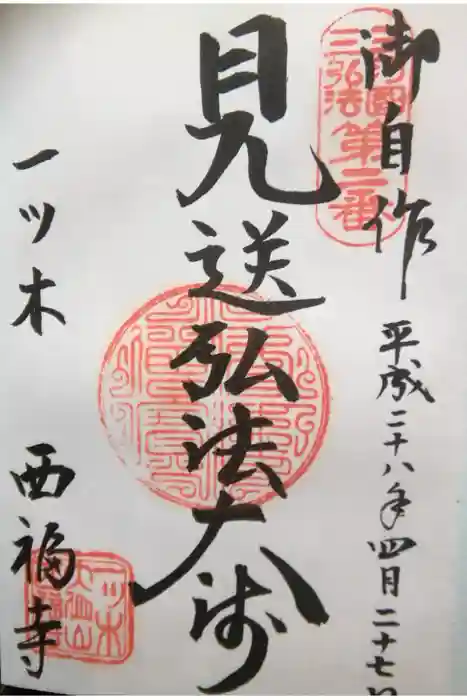 三河国
三弘法
第二番
御自作
平成二十八年四月二十七
見送弘法大師
一ツ木 西福寺